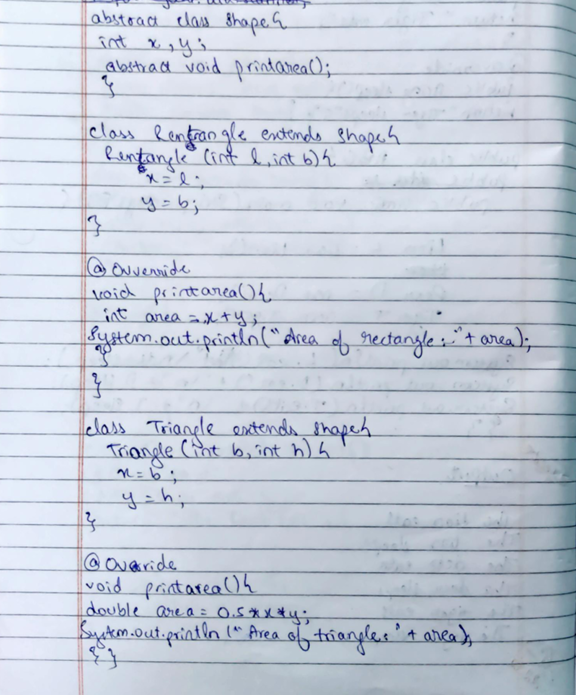 abstract class shape{
int x, y;
abstract void printarea();
}
class Rentrangle extends shape{
Rentangle (int l, int b){
x = l;
y = b;
}
@ Ovverride
void printarea(){
int area = x+y;
System.out.println("Area of rectangle:-"+ area);
}
}
class Triangle extends shape{
Triangle (int b, int h) {
x = b;
y = h;
}
@ Override
void printarea(){
double area = 0.5*x*y;
System.out.println (" Area of triangle: " + area);
} }